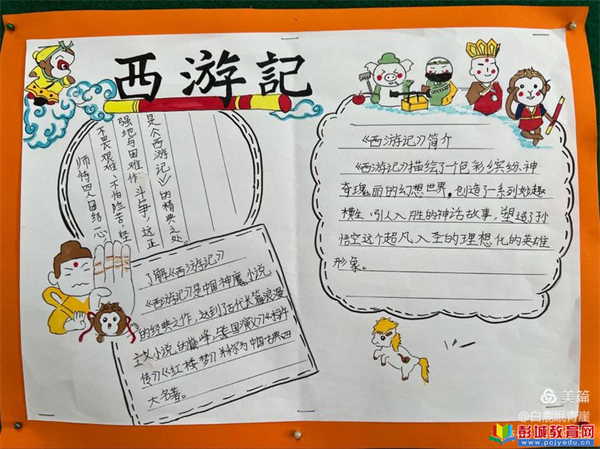 西游記
师恃四人团结一心
不畏艰难、不怕险苦,坚
强地与困难作斗争,这正
是《西游记》的精典之处。
了解《西游记》
《西游记》是中国神魔小说
的经典之作,达到了古代长篇浪漫
主义小说的巅峰,三国演义》《水浒
传》《红楼梦》并称为中国古典四
大名著。
《西游记》简介
《西游记》描绘了个色彩缤纷、神
奇瑰丽的幻想世界,创造了一系列妙趣
横生、引人入胜的神话故事,塑造了孙
悟空这个超凡入圣的理想化的英雄
形象。
美篇
@白鹿眠青崖
彭城教育网
www.pcjyedu.cn